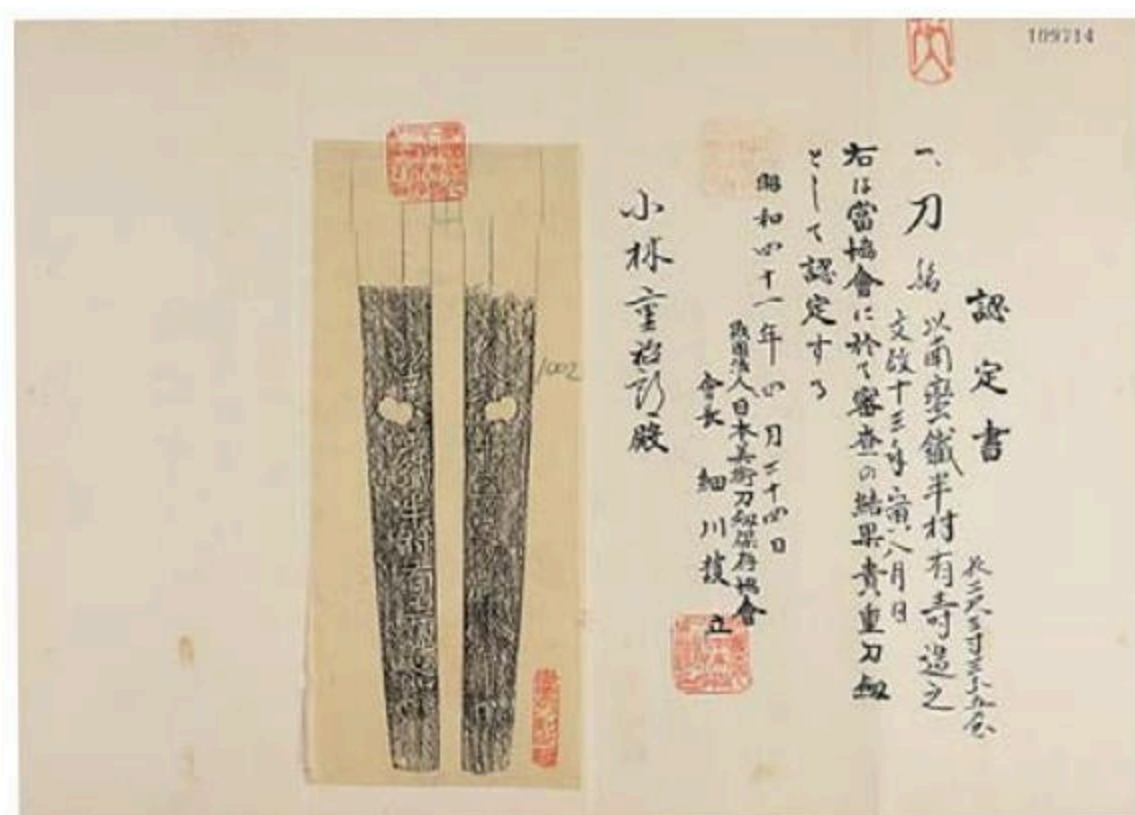 109714
認定書
一、刀 銘 以南蛮鐵半村有寿造之
文政十三年寅八月日
長二尺三寸三分五厘
右は當協會に於て審査の結果貴重刀剱
として認定する
昭和四十一年四月二十四日
財團法人日本美術刀剱保存協會
會長 細川護立
小林重裕郎殿
1002